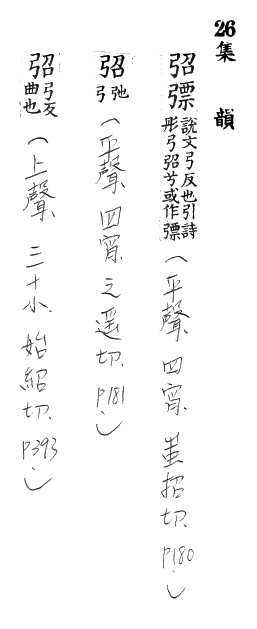 26 集韻
弨弸 說文弓反也引詩彤弓弨兮或作彇（平聲 四宵 蚩招切 P180.）
弨 弛弓（平聲 四宵 之遥切 P181.）
弨 弓反曲也（上聲 三十小 始紹切 P393.）